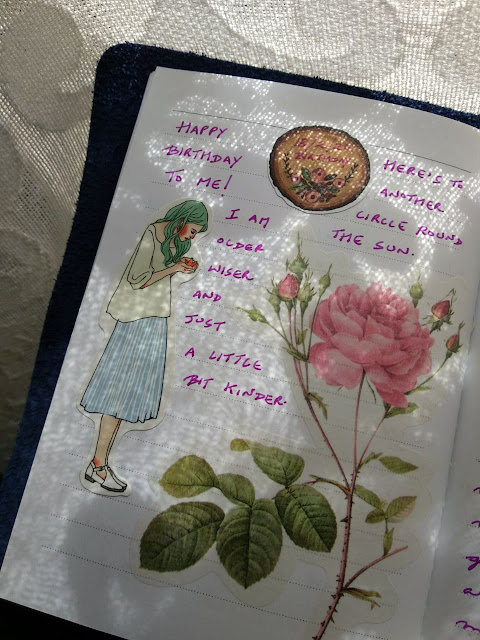 HAPPY
BIRTHDAY
TO ME!
I AM
OLDER
WISER
AND
JUST
A LITTLE
BIT KINDER.
HERE'S TO
ANOTHER
CIRCLE ROUND
THE SUN.
BIRTHDAY